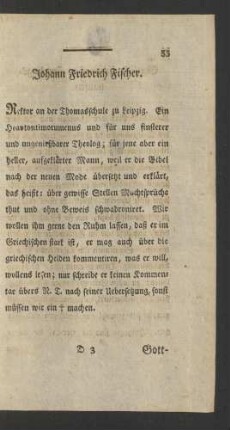 53
Johann Friedrich Fischer.
Rektor an der Thomasschule zu Leipzig. Ein
Heavtontimorumenus und für uns finsterer
und ungeniesbarer Theolog; für jene aber ein
heller, aufgeklärter Mann, weil er die Bibel
nach der neuen Mode übersetzt und erklärt,
das heißt: über gewisse Stellen Machtsprüche
thut und ohne Beweis schwadronirt. Wir
wollen ihm gerne den Ruhm lassen, daß er im
Griechischen stark ist, er mag auch über die
griechischen Heiden kommentiren, was er will,
wollens lesen; nur schreibe er keinen Kommen-
tar übers N. T. nach seiner Uebersetzung, sonst
müssen wir ein † machen.
D 3
Gott-